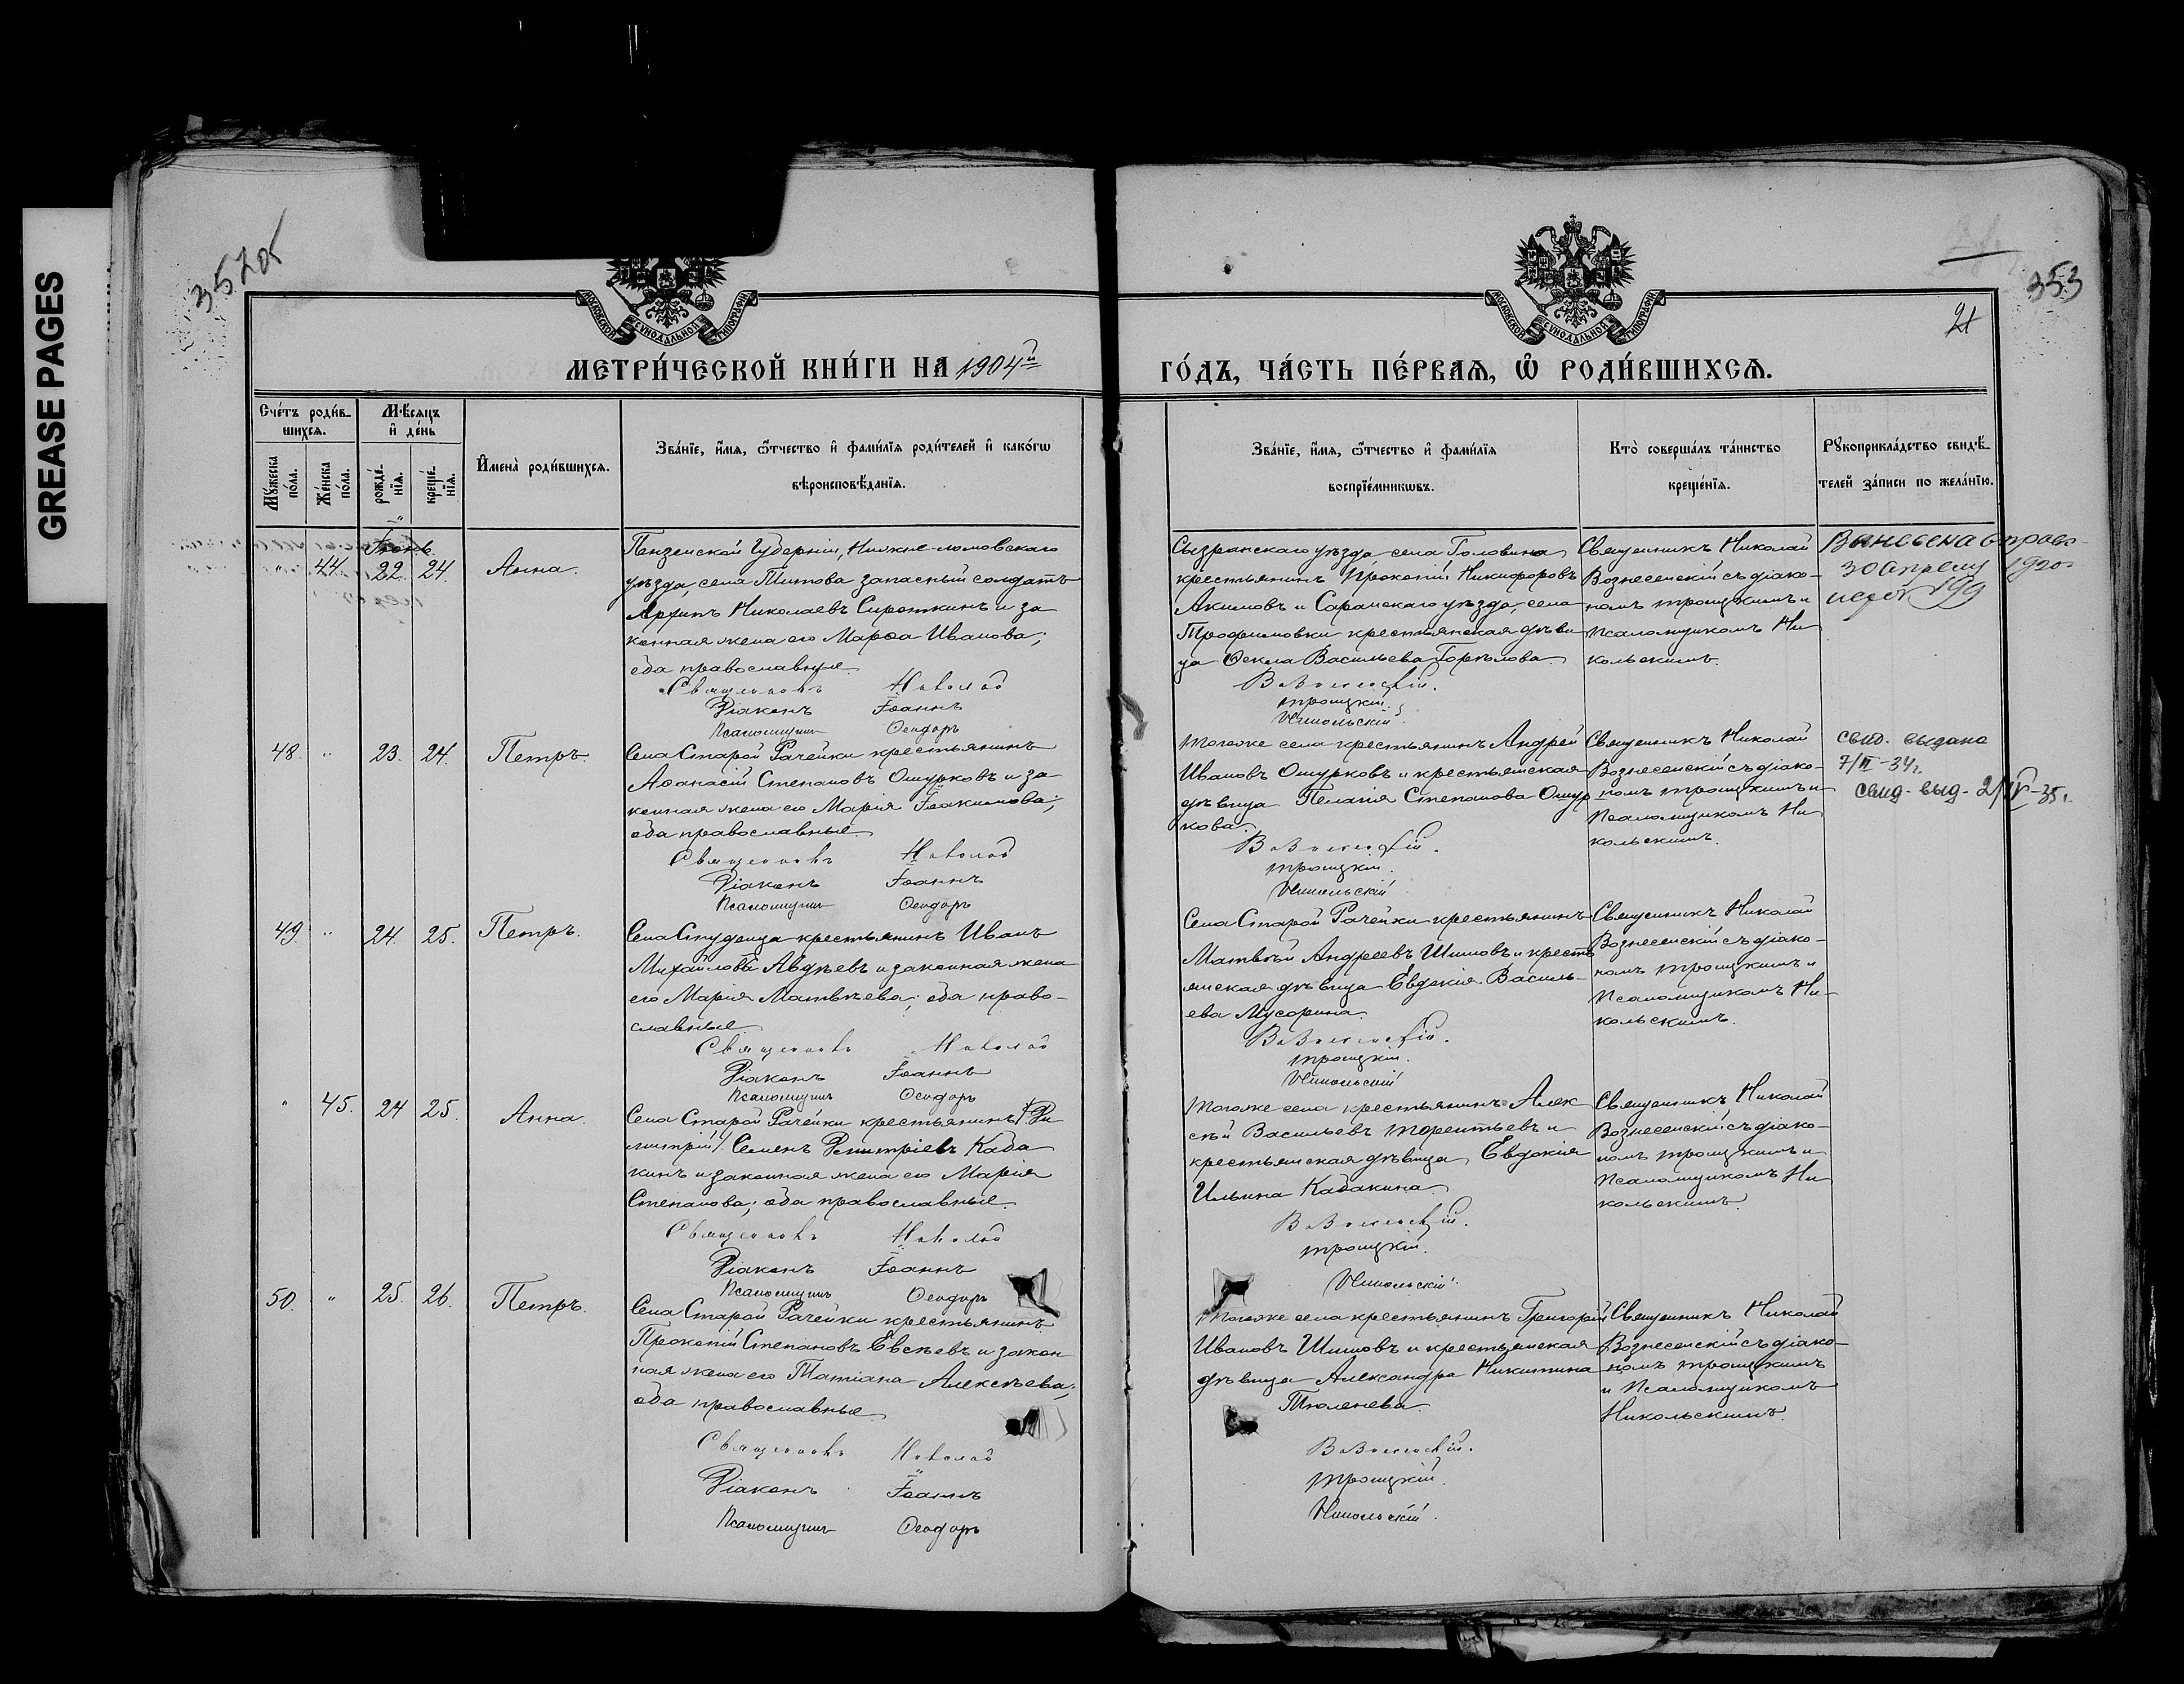 GREASE PAGES
353
21
МОСКОВСКОЙ СѴНОДАЛЬНОЙ ТИПОГРАФІИ
МОСКОВСКОЙ СѴНОДАЛЬНОЙ ТИПОГРАФІИ
МЕТРИ́ЧЕСКОЙ КНИ́ГИ НА 1904й
ГО́ДЪ, ЧА́СТЬ ПЕ́РВАЯ, Ѽ РОДИ́ВШИХСЯ.
Сче́тъ роди́в-
шихся.
Мѣ́сяцъ
и҆ де́нь
Му́жеска по́ла.
Же́нска по́ла.
рожде́-нїя.
креще́-нїя.
И҆мена̀ роди́вшихся.
Зва́нїе, и҆́мя, ѻ҆́тчество и҆ фами́лїя роди́телей и҆ како́гѡ
вѣроисповѣ́данїя.
Зва́нїе, и҆́мя, ѻ҆́тчество и҆ фами́лїя
воспрїе́мникѡвъ.
Кто̀ соверша́лъ та́инство
креще́нїя.
Рꙋкоприкла́дство свидѣ́-
телей за́писи по жела́нїю.
Іюнь
" 44. 22. 24. Анна.
Пензенской Губерніи, Нижне-ломовскаго
уѣзда, села Титова запасный солдатъ
Николаевъ Сироткинъ и за
конная жена его Марѳа Иванова;
оба православные.
Священникъ Николай
Діаконъ Іоаннъ
Псаломщикъ Ѳеодоръ
Сызранскаго уѣзда села Головина
крестьянинъ Прокопій Никифоровъ
Акимовъ и Саранскаго уѣзда, села
Трофимовки крестьянская дѣви
ца Ѳекла Васильева Горѣлова.
Вознесенскій.
Троицкій.
Никольскій.
Священникъ Николай
Вознесенскій съ діако-
номъ Троицкимъ и
Псаломщикомъ Ни
кольскимъ.
30 Апрелу 1920г
199
48. " 23. 24. Петръ.
Села Старой Рачейки крестьянинъ
Аѳанасій Степановъ Ошурковъ и за
конная жена его Марія Іоакимова;
оба православные
Священникъ Николай
Діаконъ Іоаннъ
Псаломщикъ Ѳеодоръ
Тогоже села крестьянинъ Андрей
Ивановъ Ошурковъ и крестьянская
дѣвица Пелагія Степанова Ошур
кова.
Вознесенскій.
Троицкій.
Никольскій
Священникъ Николай
Вознесенскій съ діако-
номъ Троицкимъ и
Псаломщикомъ Ни
кольскимъ.
свид. выдано
7/II-34г.
свид- выд- 2/IV-35г.
49. " 24. 25. Петръ.
Села Студенца крестьянинъ Иванъ
Михайловъ Авдѣевъ и законная жена
его Марія Матвѣева; оба право-
славные
Священникъ Николай
Діаконъ Іоаннъ
Псаломщикъ Ѳеодоръ
Села Старой Рачейки крестьянинъ
Матвѣй Андреевъ Шишовъ и кресть
янская дѣвица Евдокія Василь-
ева Мусорина.
Вознесенскій.
Троицкій.
Никольскій
Священникъ Николай
Вознесенскій съ діако-
номъ Троицкимъ и
Псаломщикомъ Ни-
кольскимъ.
" 45. 24 25. Анна.
Села Старой Рачейки крестьянинъ /Ди
митрій/ Семенъ Димитріевъ Каба
кинъ и законная жена его Марія
Степанова; оба православные.
Священникъ Николай
Діаконъ Іоаннъ
Псаломщикъ Ѳеодоръ
Тогоже села крестьянинъ Алек
сѣй Васильевъ Терентьевъ и
крестьянская дѣвица Евдокія
Ильина Кабакина.
Вознесенскій.
Троицкій.
Никольскій
Священникъ Николай
Вознесенскій съ діако-
номъ Троицкимъ и
Псаломщикомъ Ни
кольскимъ.
50. " 25. 26. Петръ.
Села Старой Рачейки крестьянинъ
Прокопій Степановъ Евсѣевъ и закон
ная жена его Татіана Алексѣева;
оба православные
Священникъ Николай
Діаконъ Іоаннъ
Псаломщикъ Ѳеодоръ
Тогоже села крестьянинъ Григорій
Ивановъ Шишовъ и крестьянская
дѣвица Александра Никитина
Тюленева.
Вознесенскій.
Троицкій.
Никольскій.
Священникъ Николай
Вознесенскій съ діако-
номъ Троицкимъ
и Псаломщикомъ
Никольскимъ.